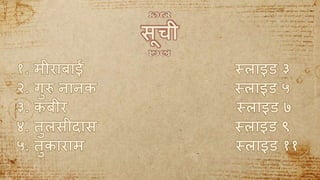 सूची
१. मीराबाई स्लाइड ३
२. गुरु नानक स्लाइड ५
३. कबीर स्लाइड ७
४. तुलसीदास स्लाइड ९
५. तुकाराम स्लाइड ११